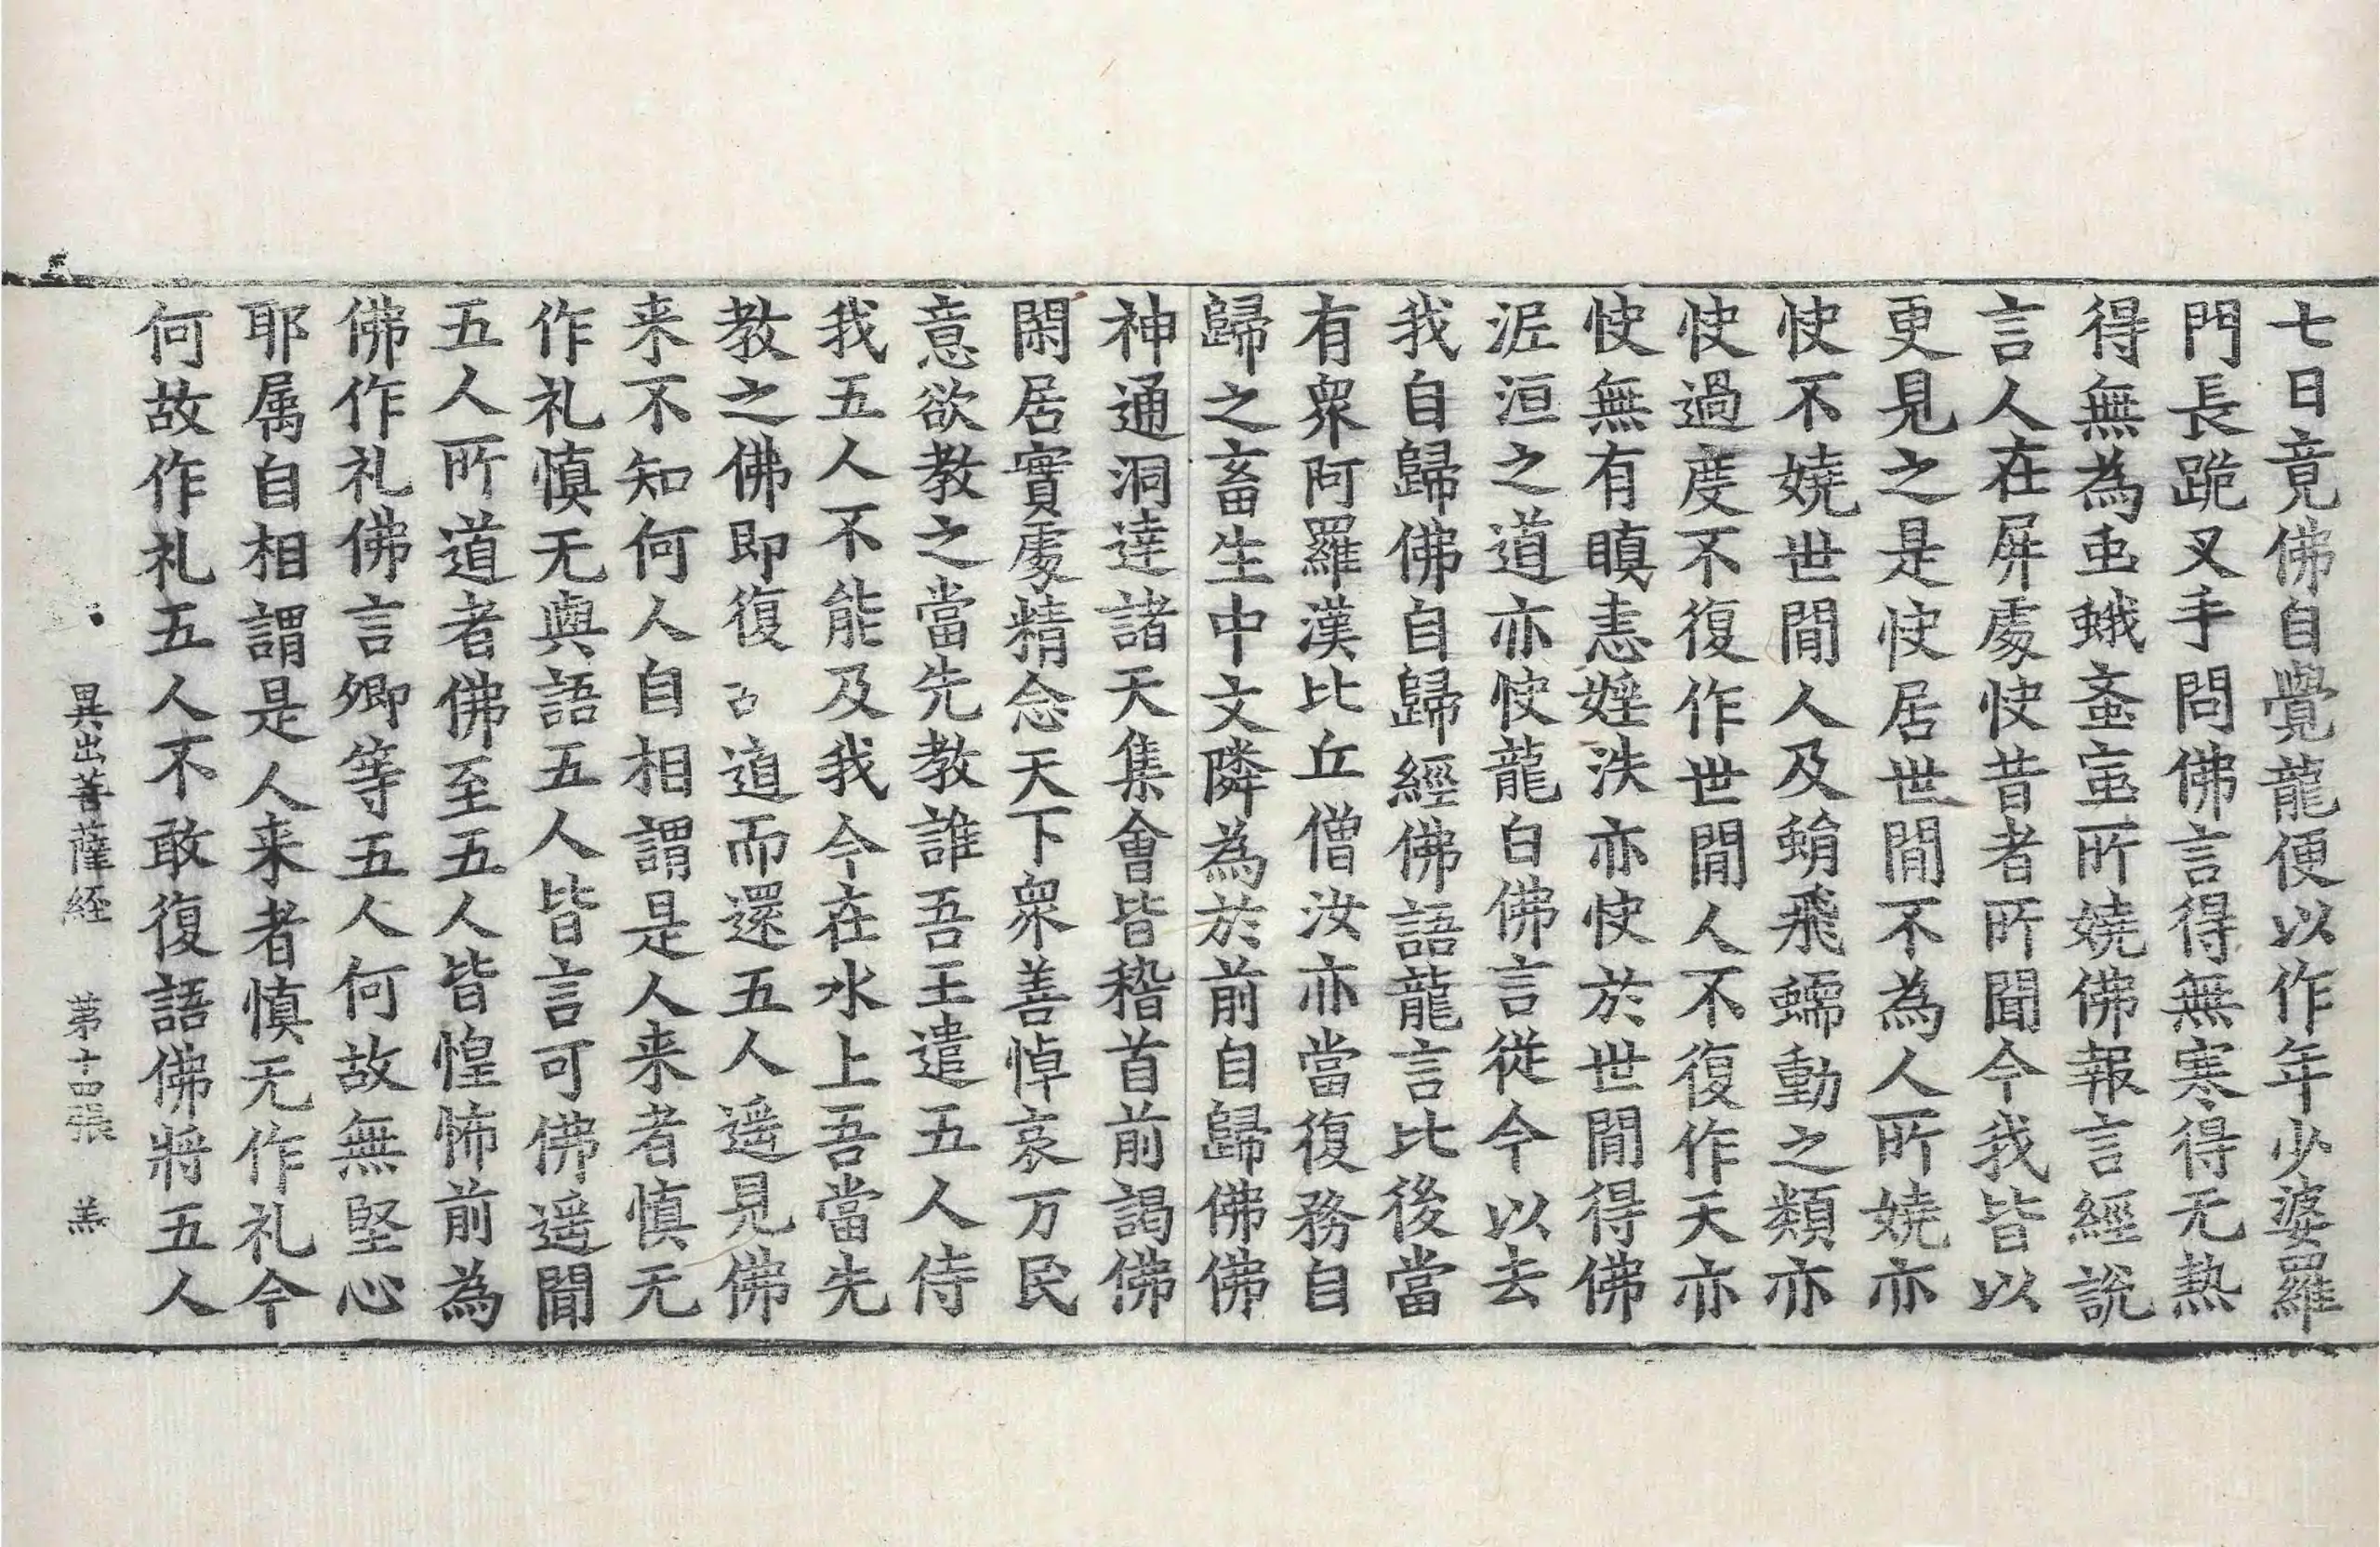 七日竟佛自覺龍便以作年少婆羅
門長跪叉手問佛言得無寒得无熱
得無為䖝蛾蚤䖟所嬈佛報言經說
言人在屏處快昔者所聞今我皆以
更見之是快居世閒不為人所嬈亦
快不嬈世閒人及蜎飛蠕動之類亦
快過度不復作世閒人不復作天亦
快無有瞋恚婬泆亦快於世閒得佛
泥洹之道亦快龍白佛言從今以去
我自歸佛自歸經佛語龍言比後當
有衆阿羅漢比丘僧汝亦當復務自
歸之畜生中文隣為於前自歸佛佛
神通洞達諸天集會皆稽首前謁佛
閑居實處精念天下衆善悼哀万民
意欲教之當先教誰吾王遣五人侍
我五人不能及我今在水上吾當先
教之佛即復道而還五人遥見佛
来不知何人自相謂是人来者慎无
作礼慎无與語五人皆言可佛遥聞
五人所道者佛至五人皆惶怖前為
佛作礼佛言卿等五人何故無堅心
耶属自相謂是人来者慎无作礼今
何故作礼五人不敢復語佛將五人
異出菩薩経 苐十四張 羔